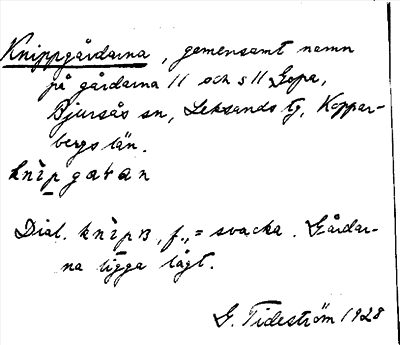 Knippgårdarna, gemensamt namn
på gårdarna 11 och s 11 Gopa,
Bjursås sn, Leksands tg, Koppar-
bergs län.
knìp gaṛan
Dial. knìpn, f., = svacka. Gårdar-
na ligga lågt.
G. Tideström 1928